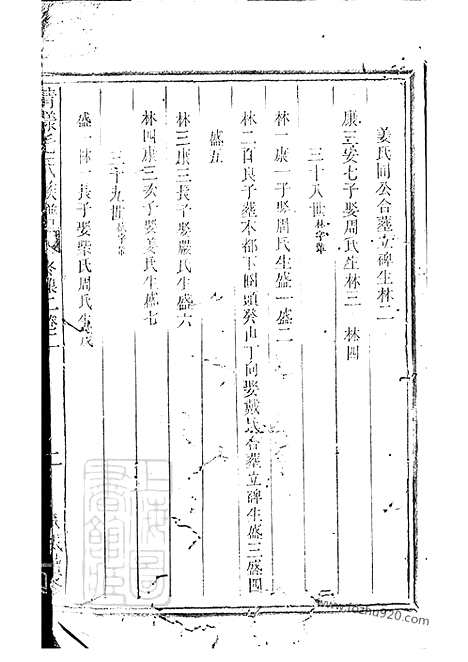 姜氏同公合葬立碑生林二
康三安七子娶周氏生林三 林四
三十八世林字輩
林一康一子娶周氏生盛一盛二
林二百良子葬本都下園頭癸山丁向娶戴氏合葬立碑生盛三盛四
盛五
林三康三長子娶嚴氏生盛六
林四康三次子娶姜氏生盛七
三十九世
盛一林一長子娶柴氏周氏生
氏族譜
卷二
二
www.fozhu920.com